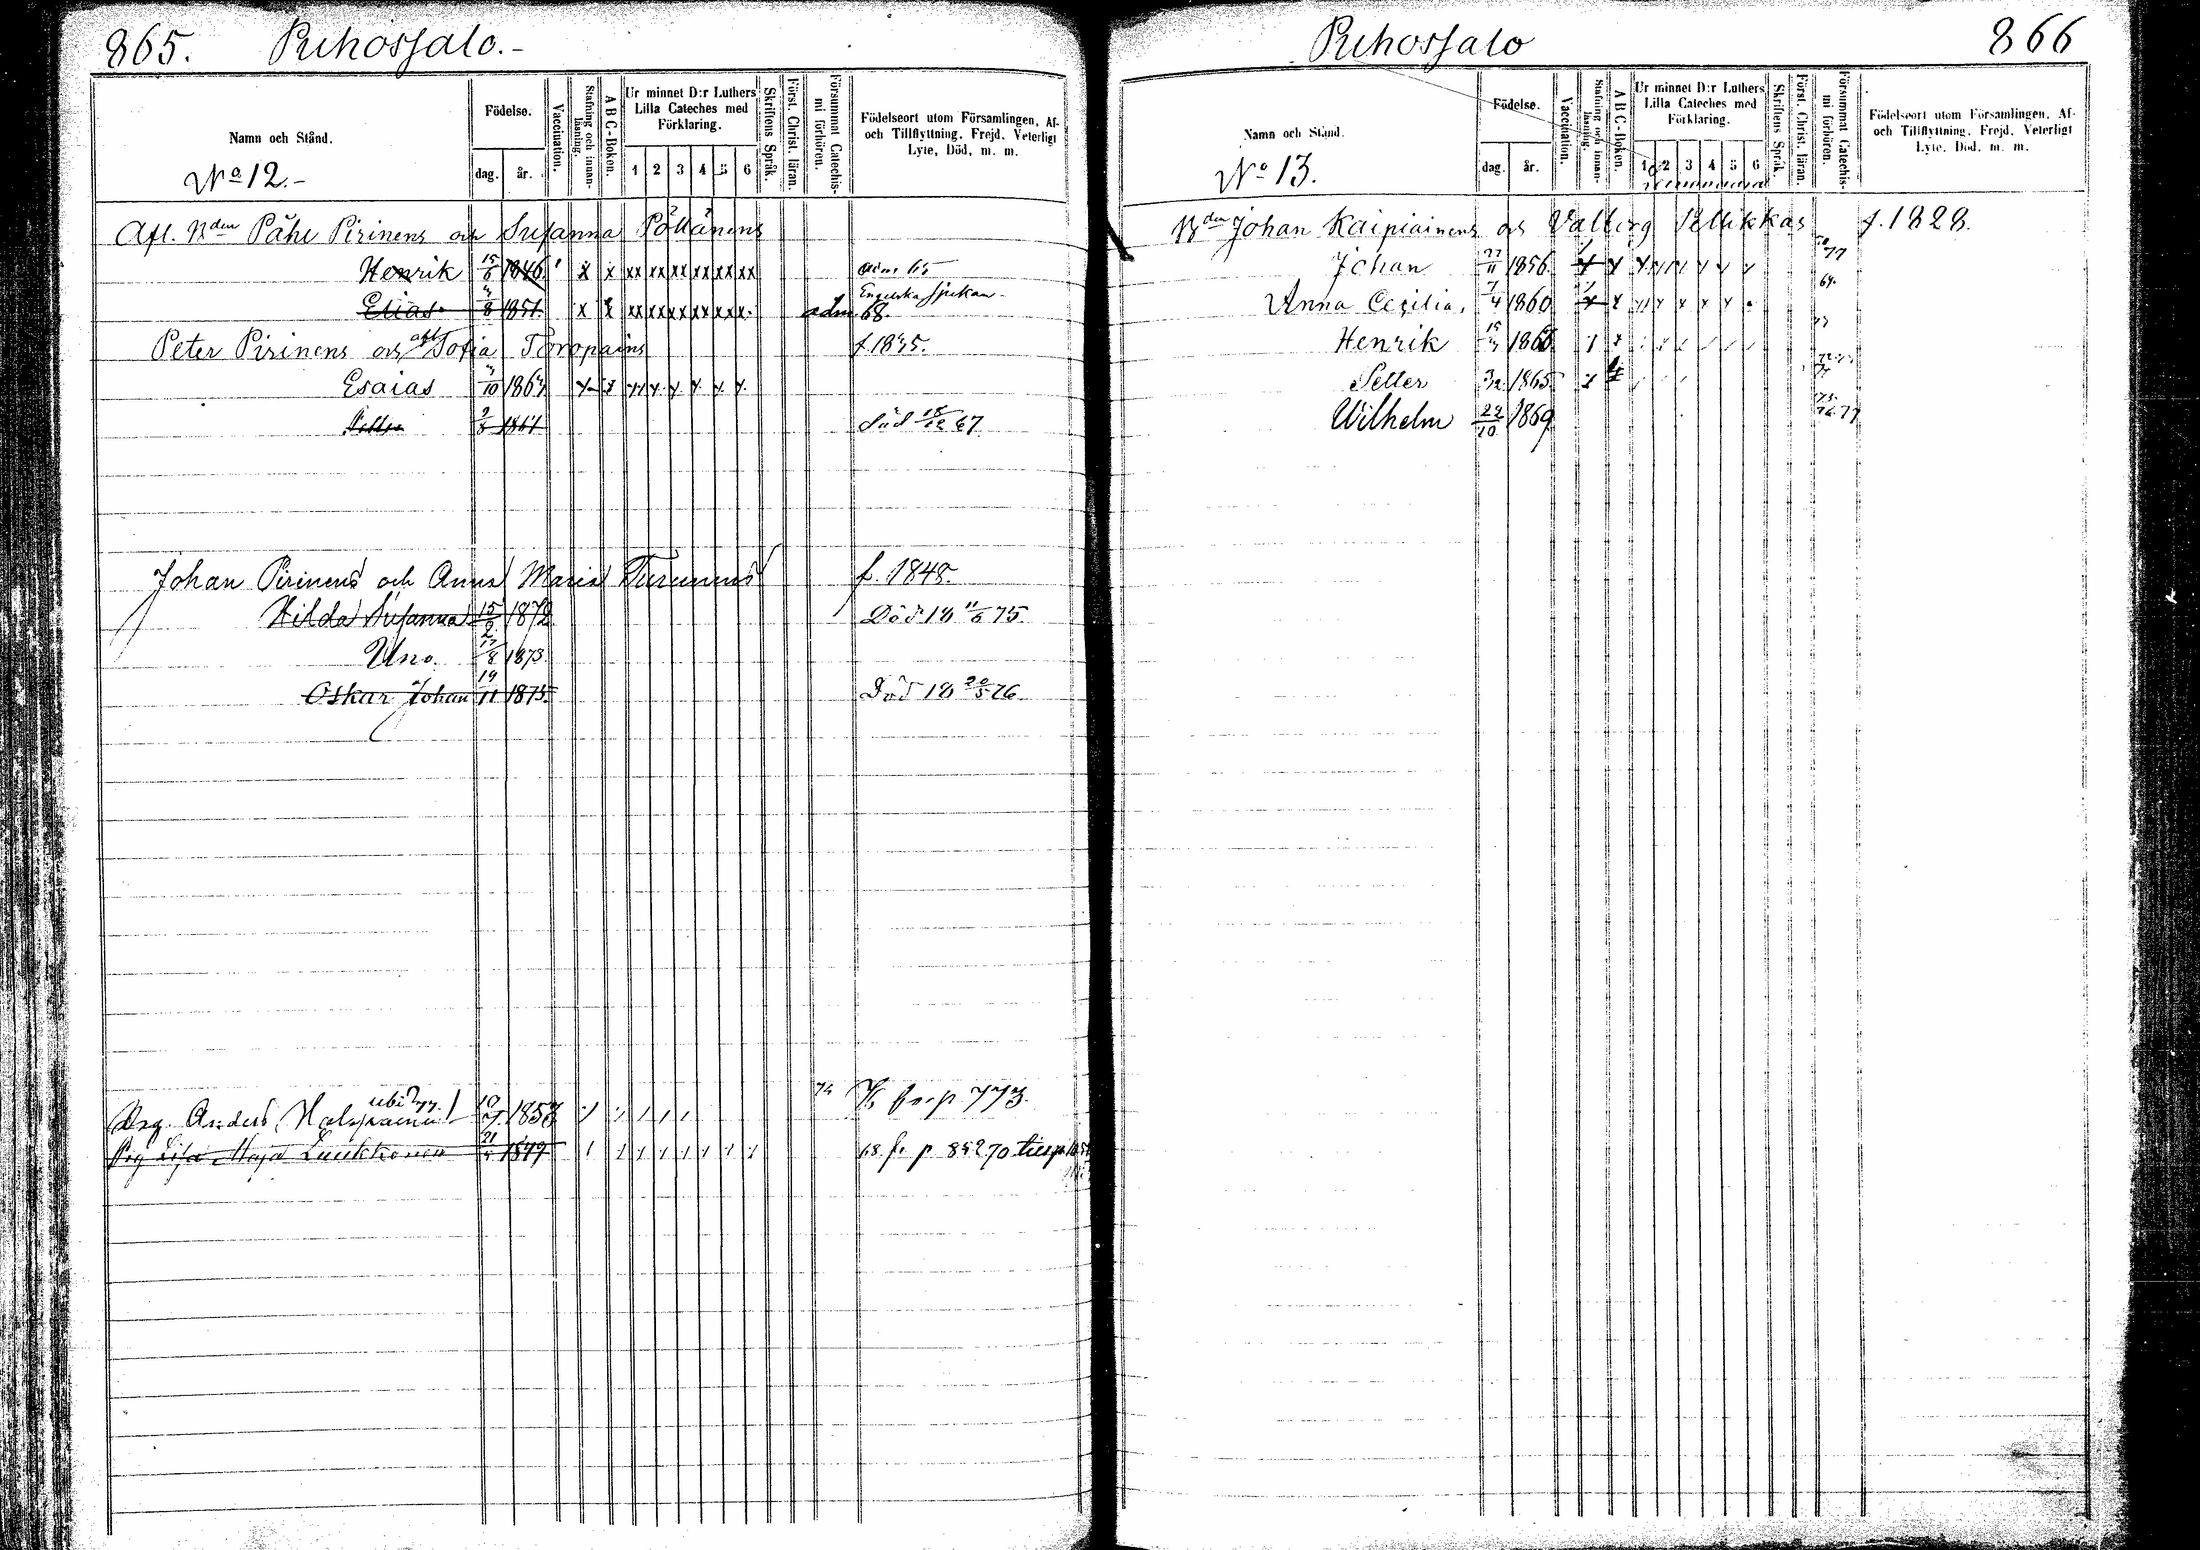 865. Rihossalo.-
Namn och Stånd.
No 12.-
Födelse.
dag. år.
Vaccination.
Stafning och innanläsning.
ABC-Boken.
Ur minnet D:r Luthers Lilla Cateches med Förklaring.
1 2 3 4 5 6
Skriftens Språk.
Först. Christ. läran.
Försummat Catechismi förhören.
Födelseort utom Församlingen, Af- och Tillflyttning, Frejd, Veterligt Lyte, Död, m. m.
Afl. Bden Påhl Pirinens och Susanna Pöllänens
Henrik 15/6 1846 x x xx xx xx xx xx xx adm 65
Engelska sjukan
Elias 8 1851 x x xx xx xx xx xx x. adm 68.
Peter Pirinens och Sofia Toropains f. 1835.
Esaias 10 1863
Petter 1867 död 67
Johan Pirinens och Anna Maria Turunens f. 1848.
Hilda Susanna 15/2 1872 Död 18 11/6 75.
Uno. 17/8 1873.
Oskar Johan 19/11 1875. Död 18 20/5 76
Drg. Anders 1853 74 fr p 773.
ubi? 77.
Pig Lisa Maja Luukkonen 21 1849 68 fr p 852 70 till p
866
Rihossalo
Namn och Stånd.
No 13.
Födelse.
dag. år.
Vaccination.
Stafning och innanläsning.
ABC-Boken.
Ur minnet D:r Luthers Lilla Cateches med Förklaring.
1 2 3 4 5 6
Skriftens Språk.
Först. Christ. läran.
Försummat Catechismi förhören.
Födelseort utom Församlingen, Af- och Tillflyttning, Frejd, Veterligt Lyte, Död, m. m.
Bden Johan Kaipiainens och Valborg Pellikkas f. 1828.
Johan 27/11 1856 77
Anna Cecilia. 7/4 1860 64.
Henrik 15 1866
Petter 3/12 1865
Wilhelm 22/10 1869 76.77